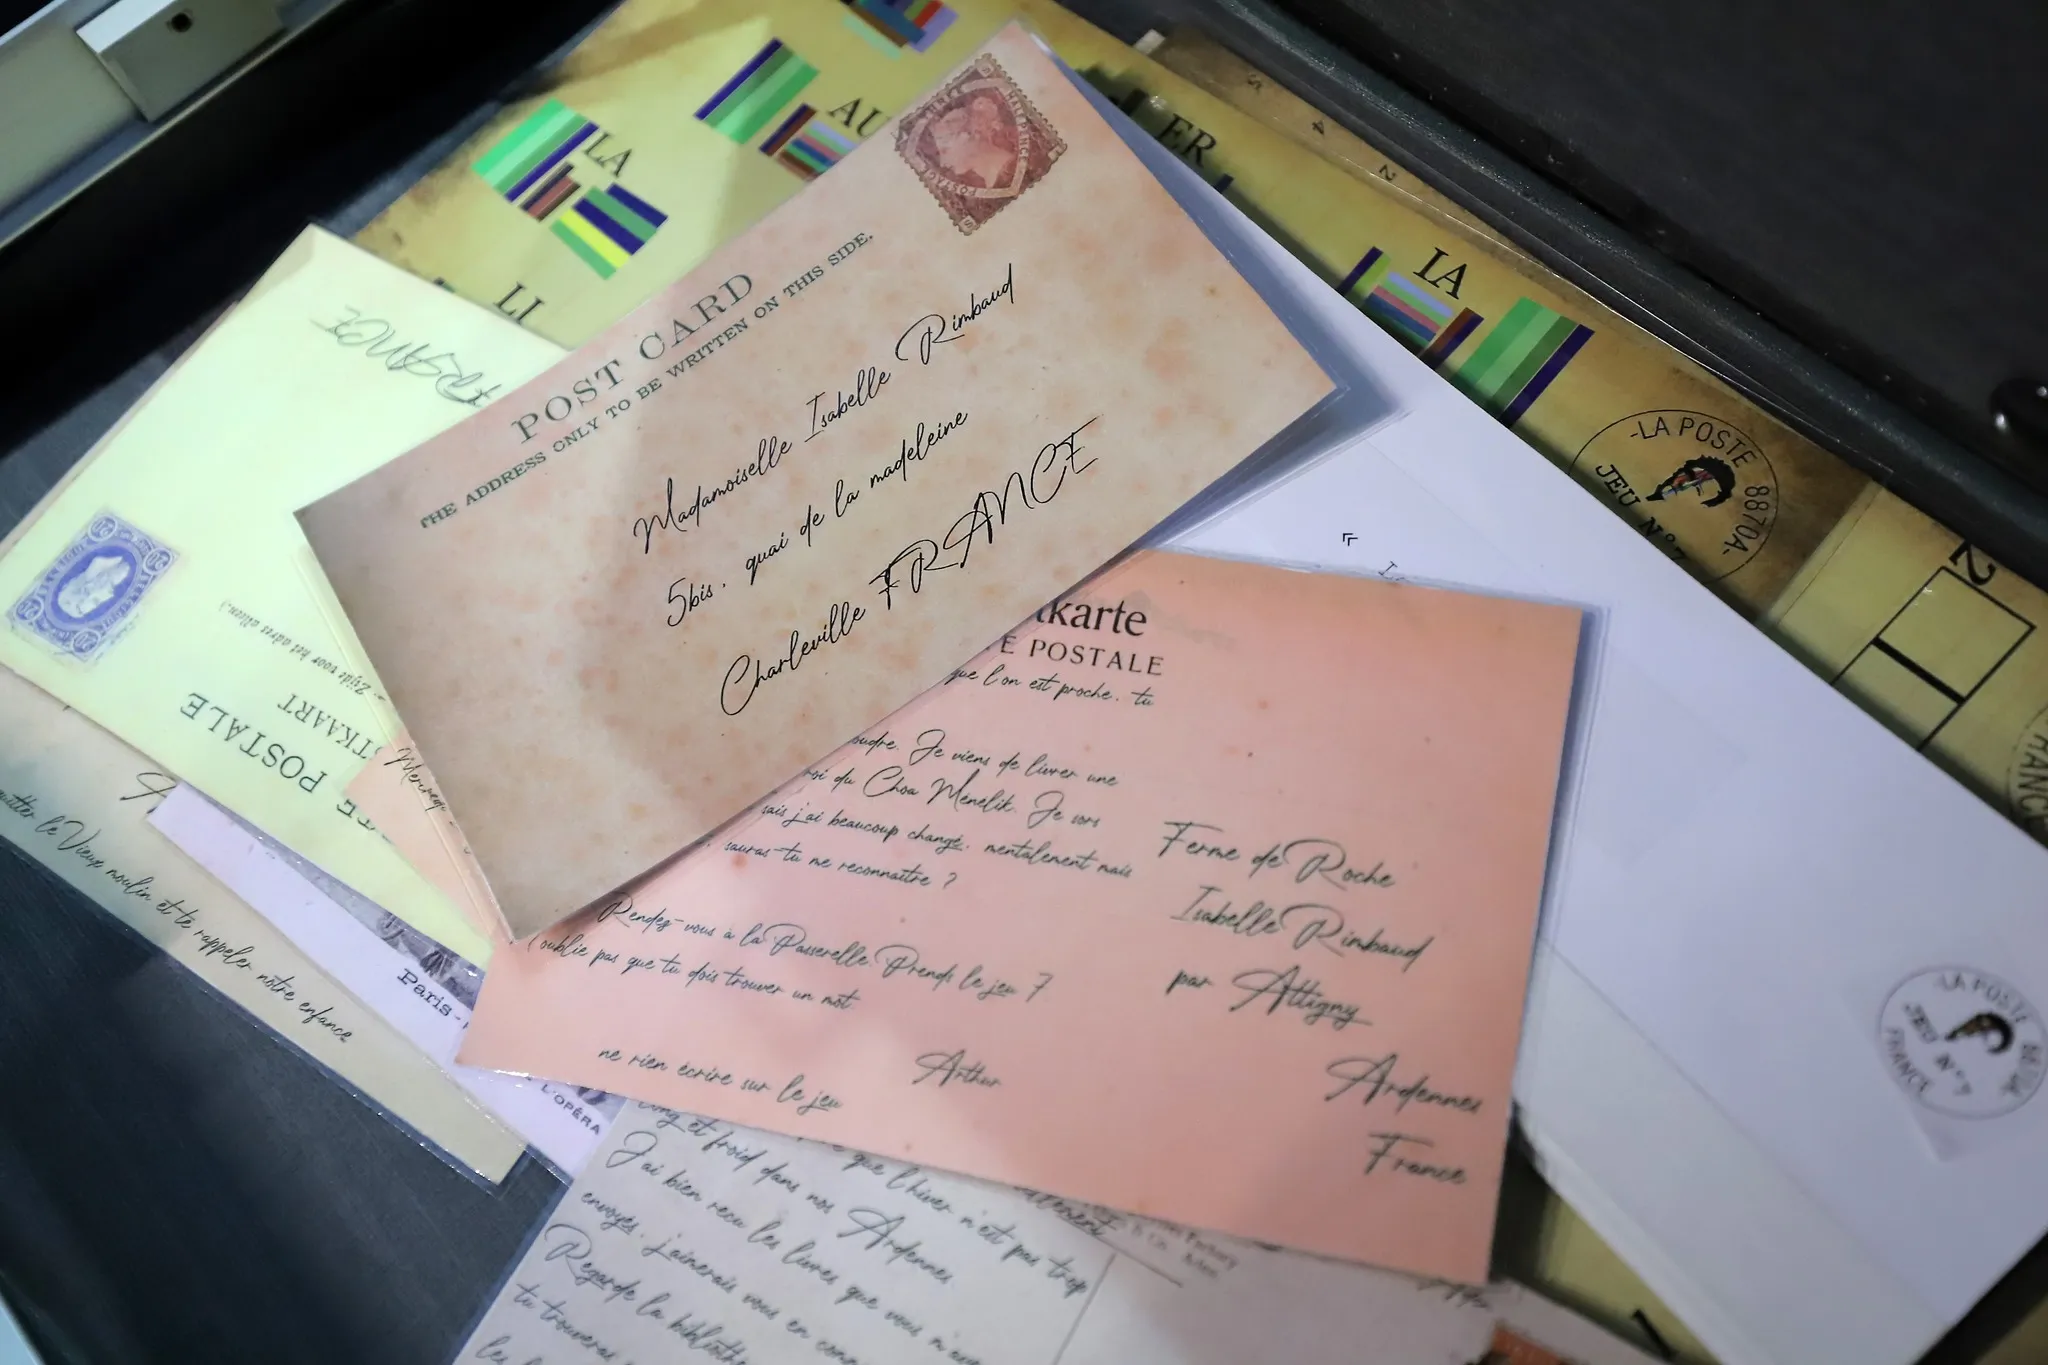 LA
AU
ER
LI
IA
5
4
2
HALFPENCE
POSTAGE
POST CARD
THE ADDRESS ONLY TO BE WRITTEN ON THIS SIDE.
Madamoiselle Isabelle Rimbaud
5bis. quai de la madeleine
Charleville FRANCE
FRANCE
POSTALE
- Zijde voor het adres alleen.)
-LA POSTE
8870A-
JEU N°7
2
«
tkarte
E POSTALE
que l'on est proche. tu
oudre. Je viens de livrer une
roi du Choa Ménélik. Je sors
sais j'ai beaucoup changé, mentalement mais
sauras-tu me reconnaître ?
Rendez-vous à la Passerelle. Prends le jeu 7
oublie pas que tu dois trouver un mot.
ne rien écrire sur le jeu
Arthur
Ferme de Roche
Isabelle Rimbaud
par Attigny
Ardennes
France
-LA POSTE
JEU N°7
FRANCE
quitter le Vieux moulin et te rappeler notre enfance
Paris -
L'OPÉRA
que l'hiver n'est pas trop
long et froid dans nos Ardennes
J'ai bien reçu les livres que vous m'
envoyés. j'aimerais vous en
Regarde la
tu trouveras
les